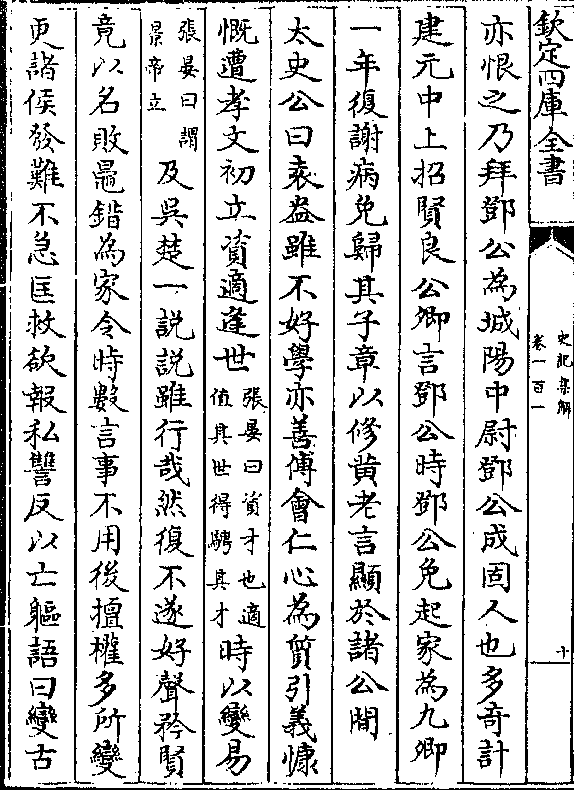 欽定四庫全書
史記集解
卷一百一
十
亦恨之乃拜鄧公為城陽中尉鄧公成固人也多奇計
建元中上招賢良公卿言鄧公時鄧公免起家為九卿
一年復謝病免歸其子章以修黄老言顯於諸公間
太史公曰袁盎雖不好學亦善傅會仁心為質引義慷
慨遭孝文初立資適逢世張晏曰資才也適值其世得騁其才時以變易
張晏曰謂景帝立及吳楚一説説雖行哉然復不遂好聲矜賢
竟以名敗鼂錯為家令時數言事不用後擅權多所變
更諸侯發難不急匡救欲報私讐反以亡軀語曰變古